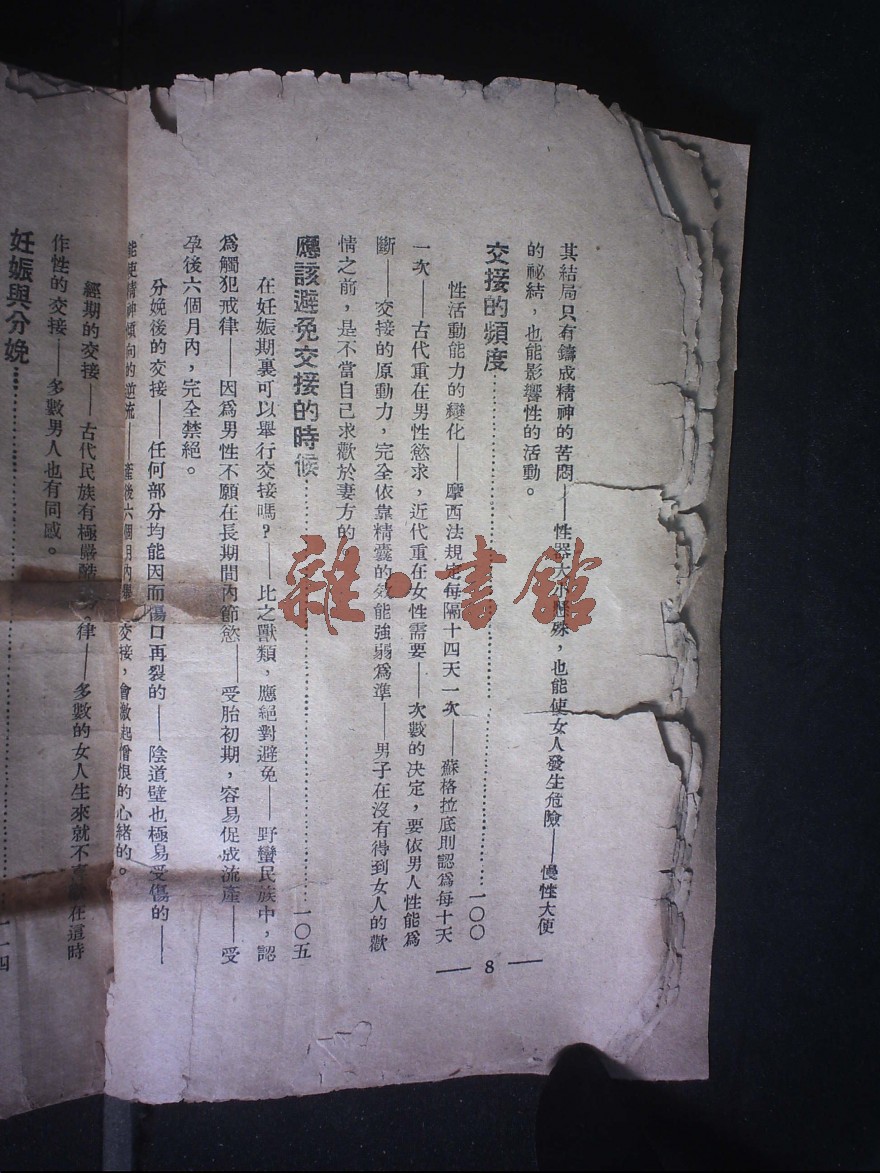 其結局只有鑄成精神的苦悶——性器大小懸殊，也能使女人發生危險——慢性大便
的祕結，也能影響性的活動。
交接的頻度……一〇〇
性活動能力的變化——摩西法規定每隔十四天一次——蘇格拉底則認爲每十天
一次——古代重在男性慾求，近代重在女性需要——次數的決定，要依男人性能爲
斷——交接的原動力，完全依靠精囊的效能強弱爲準——男子在沒有得到女人的歡
情之前，是不當自己求歡於妻方的
應該避免交接的時候……一〇五
在妊娠期裏可以舉行交接嗎？——比之獸類，應絕對避免——野蠻民族中，認
爲觸犯戒律——因爲男性不願在長期間內節慾——受胎初期，容易促成流產——受
孕後六個月內，完全禁絕。
分娩後的交接——任何部分均能因而傷口再裂的——陰道壁也極易受傷的——
能使精神傾向的逆流——產後六個月內舉 交接，會激起憎恨的心緒的。
經期的交接——古代民族有極嚴酷 律——多數的女人生來就不 在這時
作性的交接——多數男人也有同感。
妊娠與分娩……一一四
8
雜·書館